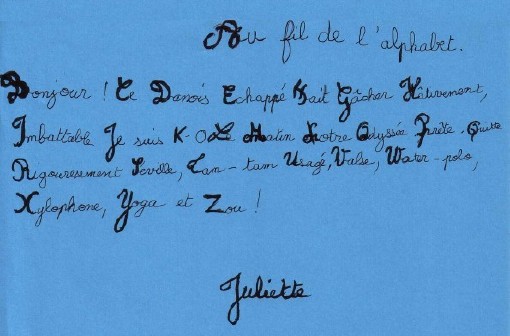 Au fil de l'alphabet.
Bonjour ! Ce Danois Echappé Fait Gâcher Hâtivement,
Imbattable Je suis K-O Le Matin Notre Odyssée Prête. Quitte
Rigoureusement Séville, Tam-tam Usagé, Valse, Water-polo,
Xylophone, Yoga et Zou !
Juliette